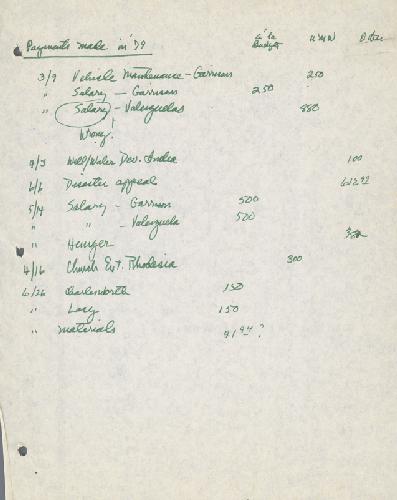 Payments made in '79
Budget Other
3/9 Vehicle Maintenance - Garrison 250
" Salary - Garrison 250
" Salary - Valenzuelas 880
Wrong!
Well/Water Dev. India 100
6/6 Disaster appeal
5/4 Salary - Garrison 500
" " - Valenzuela 500
" Hunger
4/16 Church Ext. Rhodesia 300
6/26 Charlesworth 150
" Lacy 150
" materials